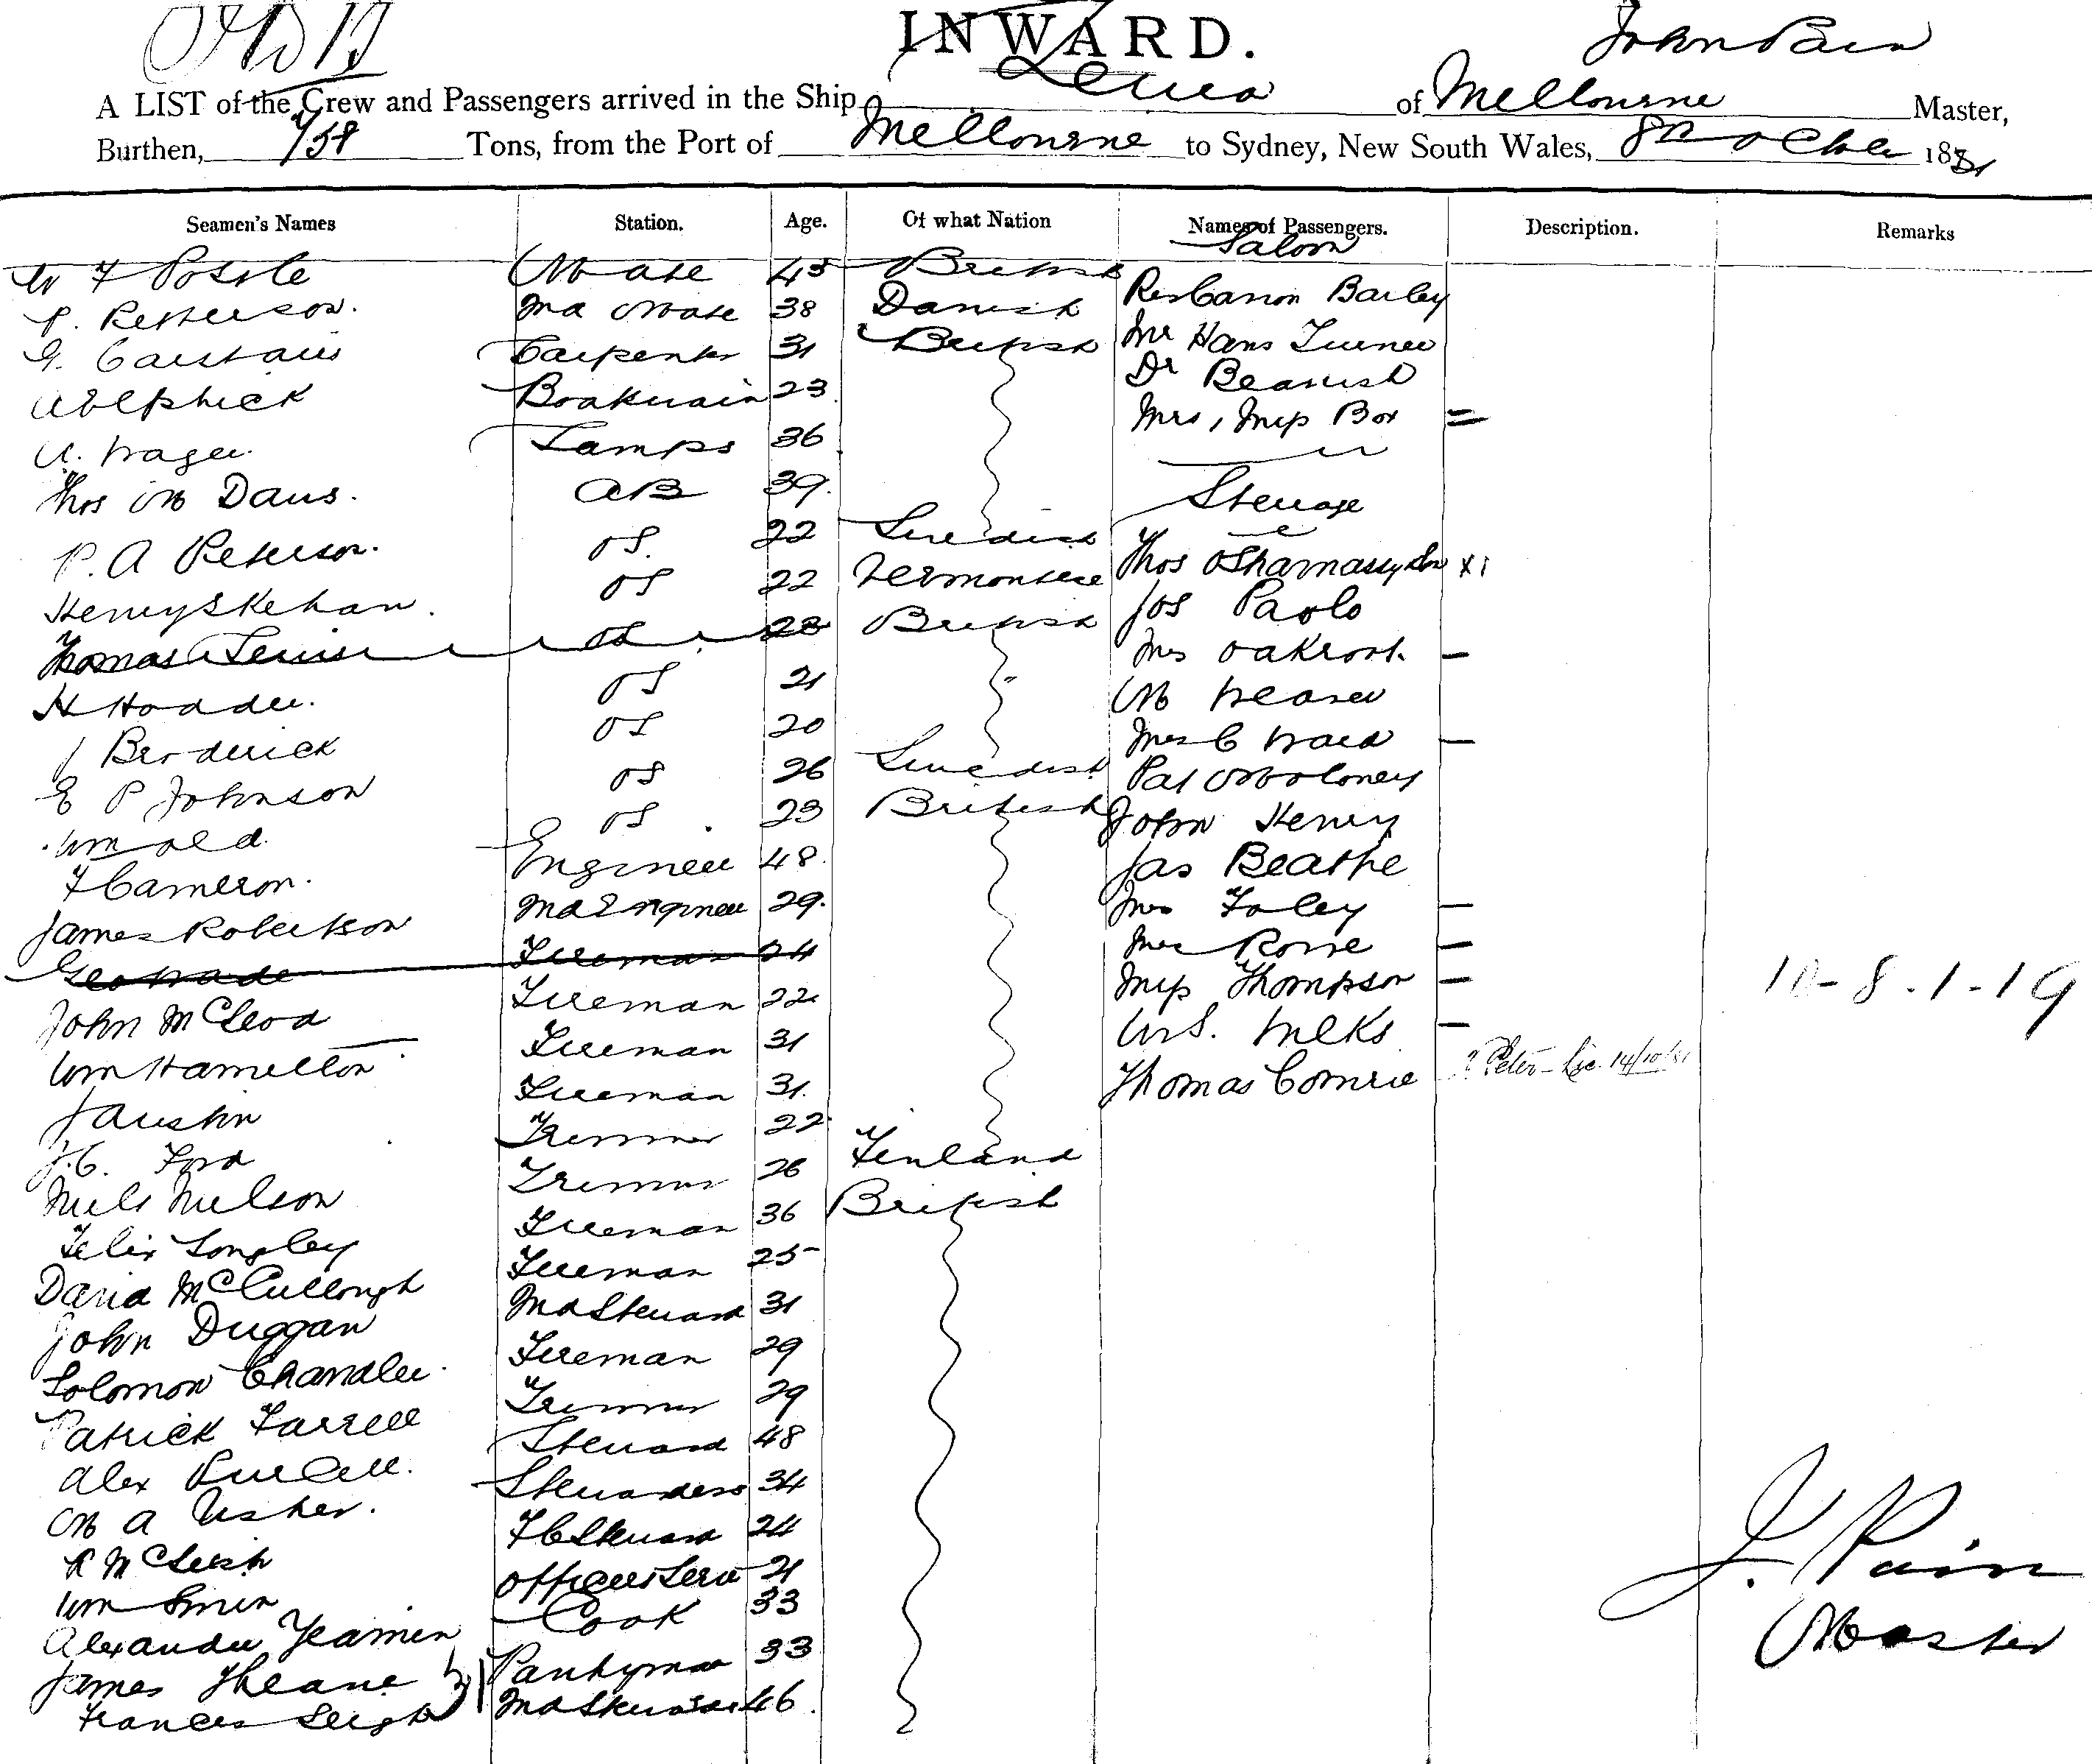 INWARD.
John Pain
A LIST of the Crew and Passengers arrived in the Ship of Melbourne Master,
Burthen, 758 Tons, from the Port of Melbourne to Sydney, New South Wales, 8th October 1881
Seamen's Names Station. Age. Of what Nation Names of Passengers. Description. Remarks
Saloon
Mate 43 British
P. Petterson. 2nd Mate 38 Danish Canon Bailey
G. Carstairs Carpenter 31 British Mr Hans Turner
A Elphick Boatswain 23 Dr Beamish
A. Wager Lamps 36 Mrs, Miss Box =
Thos M Davis. AB 39. Steerage
P. A Peterson. OS. 22 Swedish Thos O'Sharnassy x 1
Henry Skehan. OS 22 Jos Paolo
Thomas Lewis OS 23 British Mrs Oakroot. -
H Hodder. OS 21 M
J Broderick OS 20 Mrs C Ward -
E P Johnson OS 26 Swedish Pat Moloney
Wm Old. OS. 23 British John Henry
F Cameron. Engineer 48. Jas Beattie
James Robertson 2nd Engineer 29. Mrs Foley -
Geo Wade Fireman 24 Mrs Rowe -
John McLeod Fireman 22 Miss Thompson - 10-8.1-19
Wm Hamilton Fireman 31 Wm S. Meeks -
J Austin Fireman 31. Thomas Comrie ? Peter - 14/10/81
J. C. Ford Trimmer 22
Niels Nielson Trimmer 26 Finland
Felix Longley Fireman 36 British
David McCullough Fireman 25
John Duggan 2nd Steward 31
Solomon Chandler. Fireman 29
Patrick Farrell Trimmer 29
Alex Purcell. Steward 48
M A Usher. Stewardess 34
R McLeish F C Steward 24
Wm Officers Serv 21
Alexander Yeamen Cook 33
James Pantryman 33
Frances Leigh 2nd Stewardess 46.
J. Pain
Master